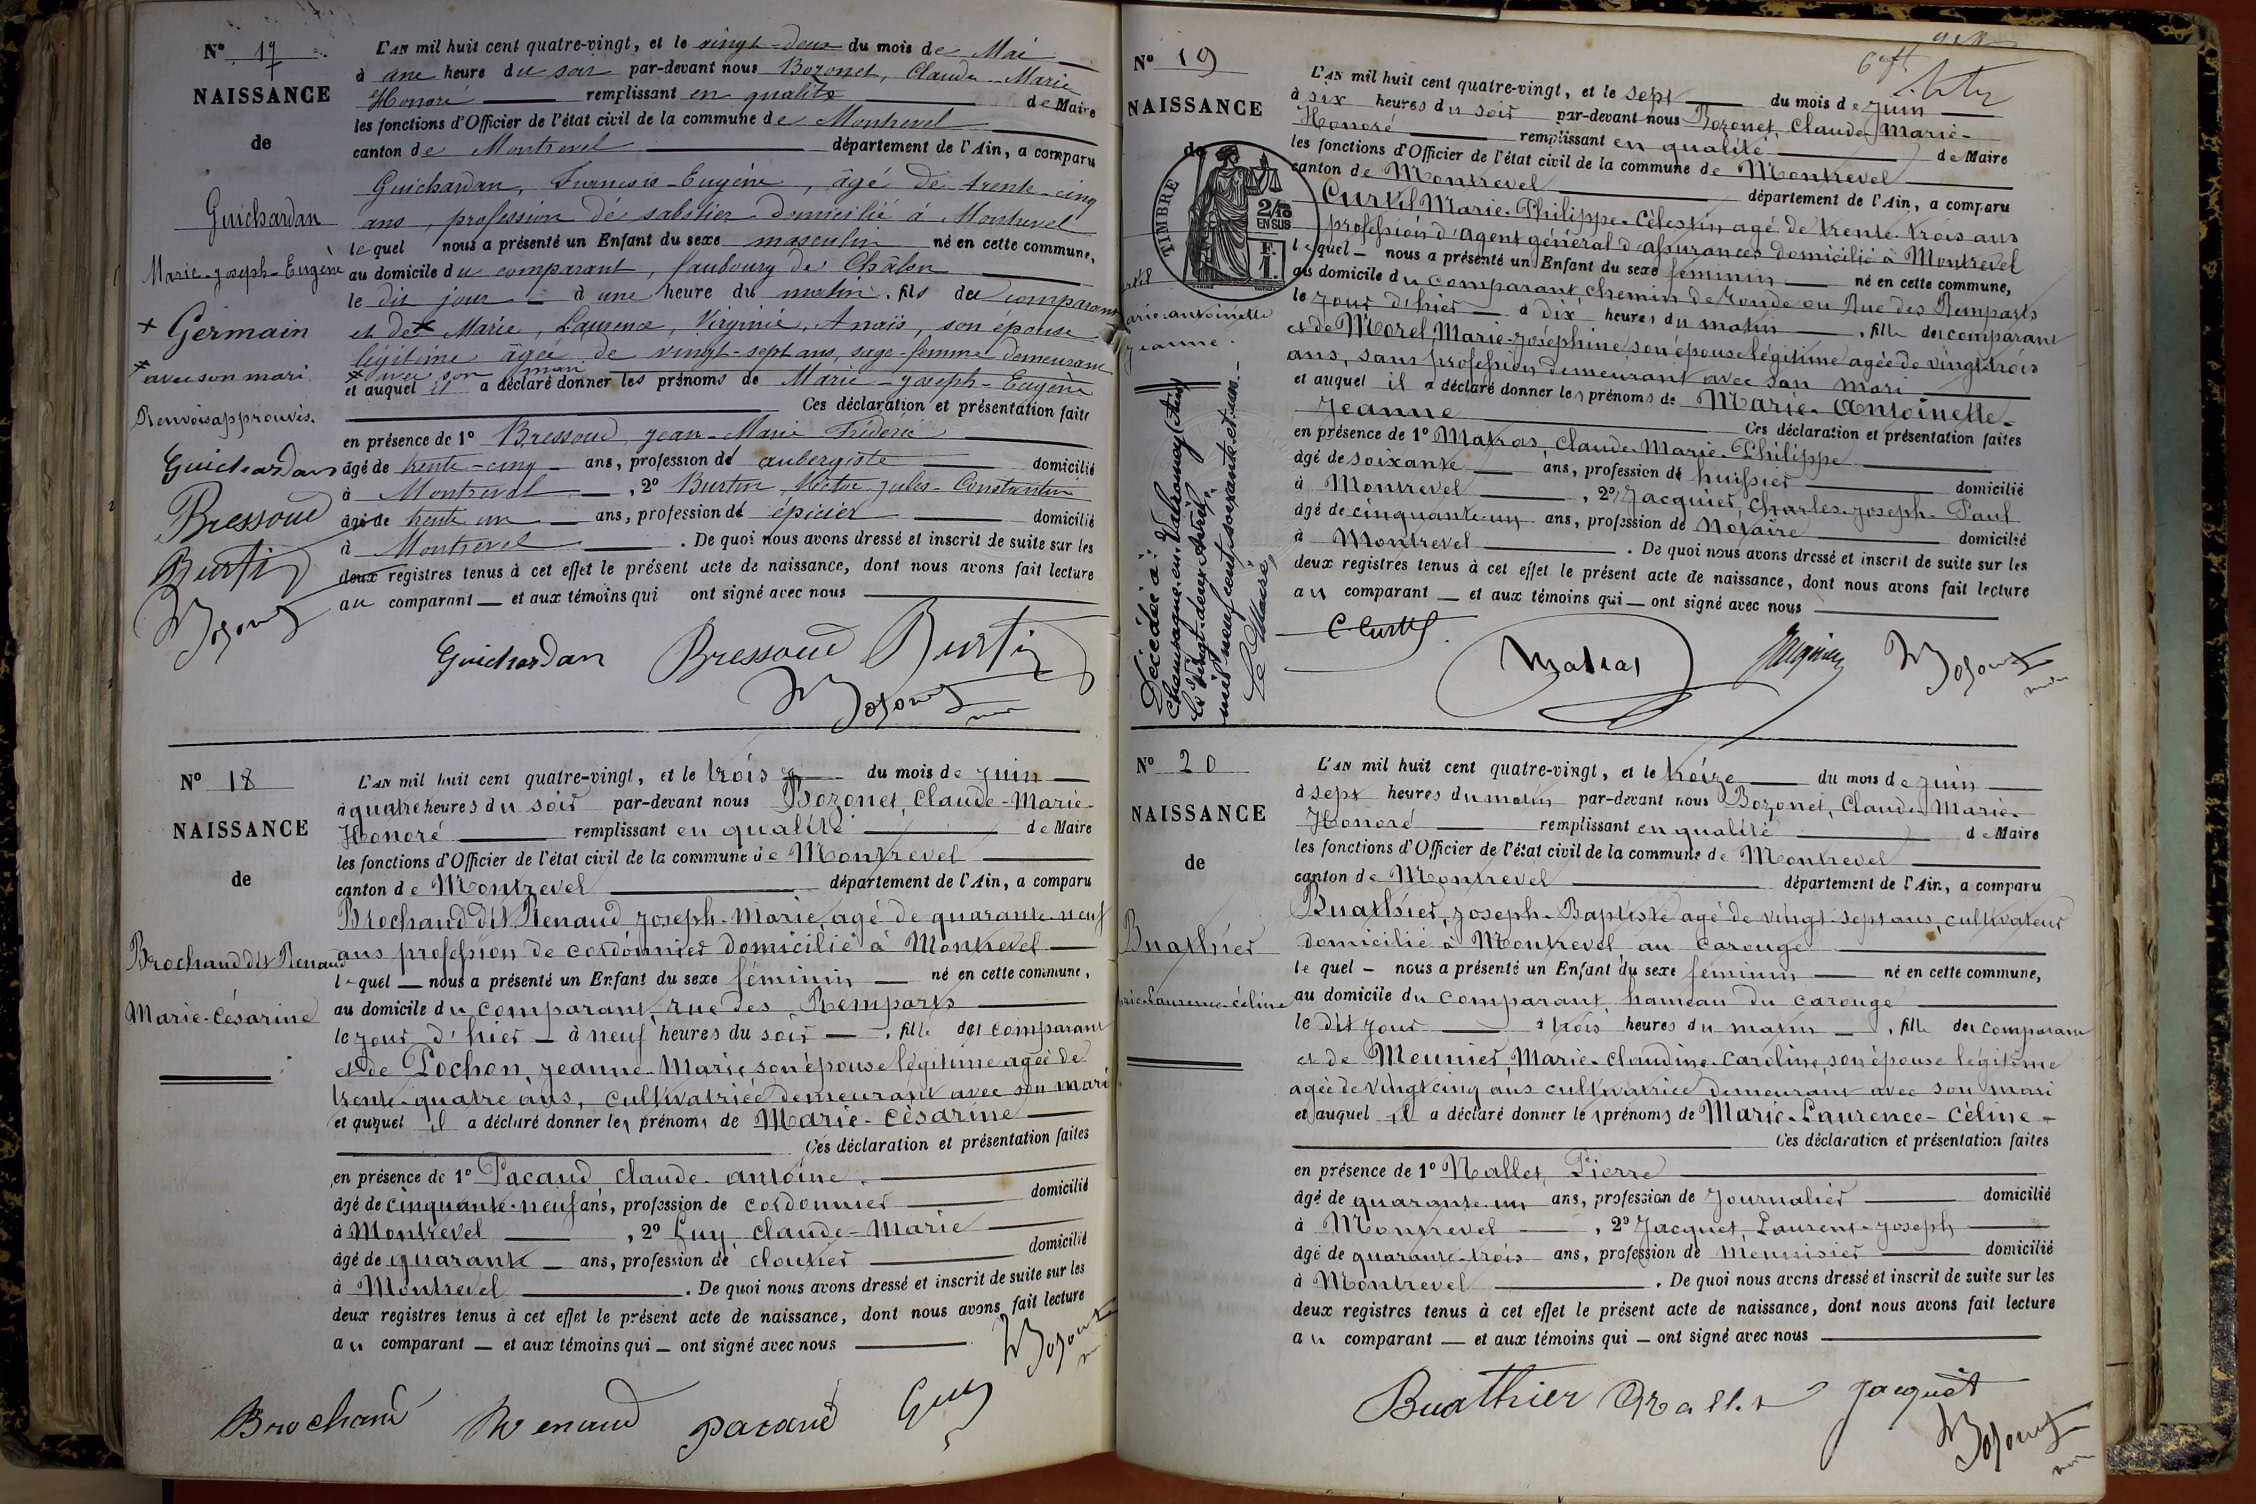 N° 17
NAISSANCE
de
Guichardan
Marie-Joseph-Eugène
+ Germain
* avec son mari
Renvois approuvés.
Guichardan
Bressoud
Burtin
L'AN mil huit cent quatre-vingt, et le vingt-deux du mois de Mai
à une heure du soir par-devant nous Bozonet, Claude-Marie
Honoré remplissant en qualité de Maire
les fonctions d'Officier de l'état civil de la commune de Montrevel
canton de Montrevel département de l'Ain, a comparu
Guichardan, Francois-Eugène, âgé de trente-cinq
ans, profession de sabotier domicilié à Montrevel
lequel nous a présenté un Enfant du sexe masculin né en cette commune,
au domicile du comparant, faubourg de Châlon
le dit jour à une heure du matin. fils du comparant
et de + Marie, Laurence, Virginie, Anaïs, son épouse
légitime âgée de vingt-sept ans, sage-femme demeurant
* avec son mari
et auquel il a déclaré donner les prénoms de Marie-Joseph-Eugène
Ces déclaration et présentation faites
en présence de 1° Bressoud Jean-Marie Frédéric
âgé de trente-cinq ans, profession de aubergiste domicilié
à Montrevel, 2° Burtin, Victor Jules-Constantin
âgé de trente un ans, profession de épicier domicilié
à Montrevel. De quoi nous avons dressé et inscrit de suite sur les
deux registres tenus à cet effet le présent acte de naissance, dont nous avons fait lecture
au comparant et aux témoins qui ont signé avec nous
Guichardan Bressoud Burtin
N° 18
NAISSANCE
de
Brochaud dit Renaud
Marie-Césarine
L'AN mil huit cent quatre-vingt, et le trois du mois de juin
à quatre heures du soir par-devant nous Bozonet, Claude-Marie-
Honoré remplissant en qualité de Maire
les fonctions d'Officier de l'état civil de la commune de Montrevel
canton de Montrevel département de l'Ain, a comparu
Brochaud dit Renaud Joseph-Marie, agé de quarante-neuf
ans profession de cordonnier domicilié à Montrevel
lequel nous a présenté un Enfant du sexe féminin né en cette commune,
au domicile du comparant, rue des Remparts
le jour d'hier à neuf heures du soir. fille du comparant
et de Pochon, Jeanne-Marie, son épouse légitime agée de
trente-quatre ans, cultivatrice demeurant avec son mari
et auquel il a déclaré donner les prénoms de Marie-Césarine
Ces déclaration et présentation faites
en présence de 1° Pacaud Claude-Antoine
âgé de cinquante-neuf ans, profession de cordonnier domicilié
à Montrevel, 2° Guy Claude-Marie
âgé de quarante ans, profession de cloutier domicilié
à Montrevel. De quoi nous avons dressé et inscrit de suite sur les
deux registres tenus à cet effet le présent acte de naissance, dont nous avons fait lecture
au comparant et aux témoins qui ont signé avec nous
Brochaud Renaud Pacaud Guy
N° 19
NAISSANCE
de
TIMBRE
2/10 EN SUS
F. 1.
arie-Antoinette
Jeanne.
Décédée à
Champagne-en-Valromey (Ain)
le vingt-deux Avril
mil neuf cent soixante et un.-
Le Maire,
L'AN mil huit cent quatre-vingt, et le sept du mois de juin
à six heures du soir par-devant nous Bozonet, Claude, Marie-
Honoré remplissant en qualité de Maire
les fonctions d'Officier de l'état civil de la commune de Montrevel
canton de Montrevel département de l'Ain, a comparu
Curtil Marie-Philippe-Célestin agé de trente-trois ans
profession d'agent général d'assurances domicilié à Montrevel
lequel nous a présenté un Enfant du sexe féminin né en cette commune,
au domicile du comparant, chemin de ronde ou Rue des Remparts
le jour d'hier à dix heures du matin. fille du comparant
et de Morel, Marie-Joséphine, son épouse légitime agée de vingt-trois
ans, sans profession demeurant avec son mari
et auquel il a déclaré donner les prénoms de Marie-Antoinette-
Jeanne Ces déclaration et présentation faites
en présence de 1° Matras, Claude-Marie-Philippe
âgé de soixante ans, profession de huissier domicilié
à Montrevel, 2° Jacquier, Charles-Joseph-Paul
âgé de cinquante-un ans, profession de Notaire domicilié
à Montrevel. De quoi nous avons dressé et inscrit de suite sur les
deux registres tenus à cet effet le présent acte de naissance, dont nous avons fait lecture
au comparant et aux témoins qui ont signé avec nous
C. Curtil Matras Jacquier
N° 20
NAISSANCE
de
Buathier
Laurence-Céline
L'AN mil huit cent quatre-vingt, et le treize du mois de juin
à sept heures du matin par-devant nous Bozonet, Claude, Marie-
Honoré remplissant en qualité de Maire
les fonctions d'Officier de l'état civil de la commune de Montrevel
canton de Montrevel département de l'Ain, a comparu
Buathier, Joseph-Baptiste agé de vingt-sept ans, cultivateur
domicilié à Montrevel au carouge
lequel nous a présenté un Enfant du sexe féminin né en cette commune,
au domicile du comparant, hameau du carouge
le dit jour à trois heures du matin, fille du comparant
et de Meunier, Marie-Claudine-Caroline, son épouse légitime
agée de vingt cinq ans cultivatrice demeurant avec son mari
et auquel il a déclaré donner les prénoms de Marie-Laurence-Céline
Ces déclaration et présentation faites
en présence de 1° Nallet, Pierre
âgé de quarante-un ans, profession de journalier domicilié
à Montrevel, 2° Jacquet, Laurent-Joseph
âgé de quarante-trois ans, profession de menuisier domicilié
à Montrevel. De quoi nous avons dressé et inscrit de suite sur les
deux registres tenus à cet effet le présent acte de naissance, dont nous avons fait lecture
au comparant et aux témoins qui ont signé avec nous
Buathier Nallet Jacquet